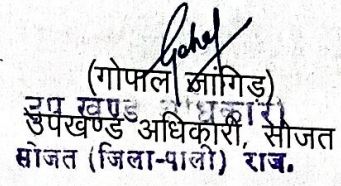 (गोपाल जांगिड)
उप खण्ड अधिकारी
उपखण्ड अधिकारी, सोजत
सोजत (जिला-पाली) राज.